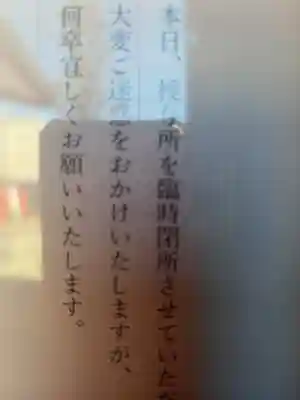 本日、授与所を臨時閉所させていただ
大変ご迷惑をおかけいたしますが、
何卒宜しくお願いいたします。